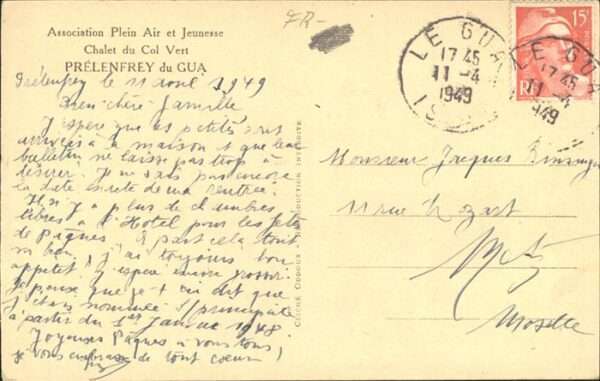 FR-
Association Plein Air et Jeunesse
Chalet du Col Vert
PRÉLENFREY du GUA
Prélenfrey le 11 avril 1949
Bien chère famille
J'espère que les petites sont
arrivées à la maison et que leur
bulletin ne laisse pas trop à
désirer. Je ne sais pas encore
la date exacte de ma rentrée.
Il n'y a plus de chambres
libres à l'Hotel pour les fêtes
de Pâques. A part cela tout
va bien. J'ai toujours bon
appétit, j'espère encore grossir.
Je pense que je t'ai dit que
j'étais nommée principale
à partir du 1er Janvier 1948.
Joyeuses Pâques à vous tous!
Je vous embrasse de tout coeur
LE GUA
17 45
11 -4
1949
IS
15F
RF
LE GUA
17 45
11 -4
1949
Monsieur Jacques
11 rue Mozart
Metz
Moselle
REPRODUCTION INTERDITE